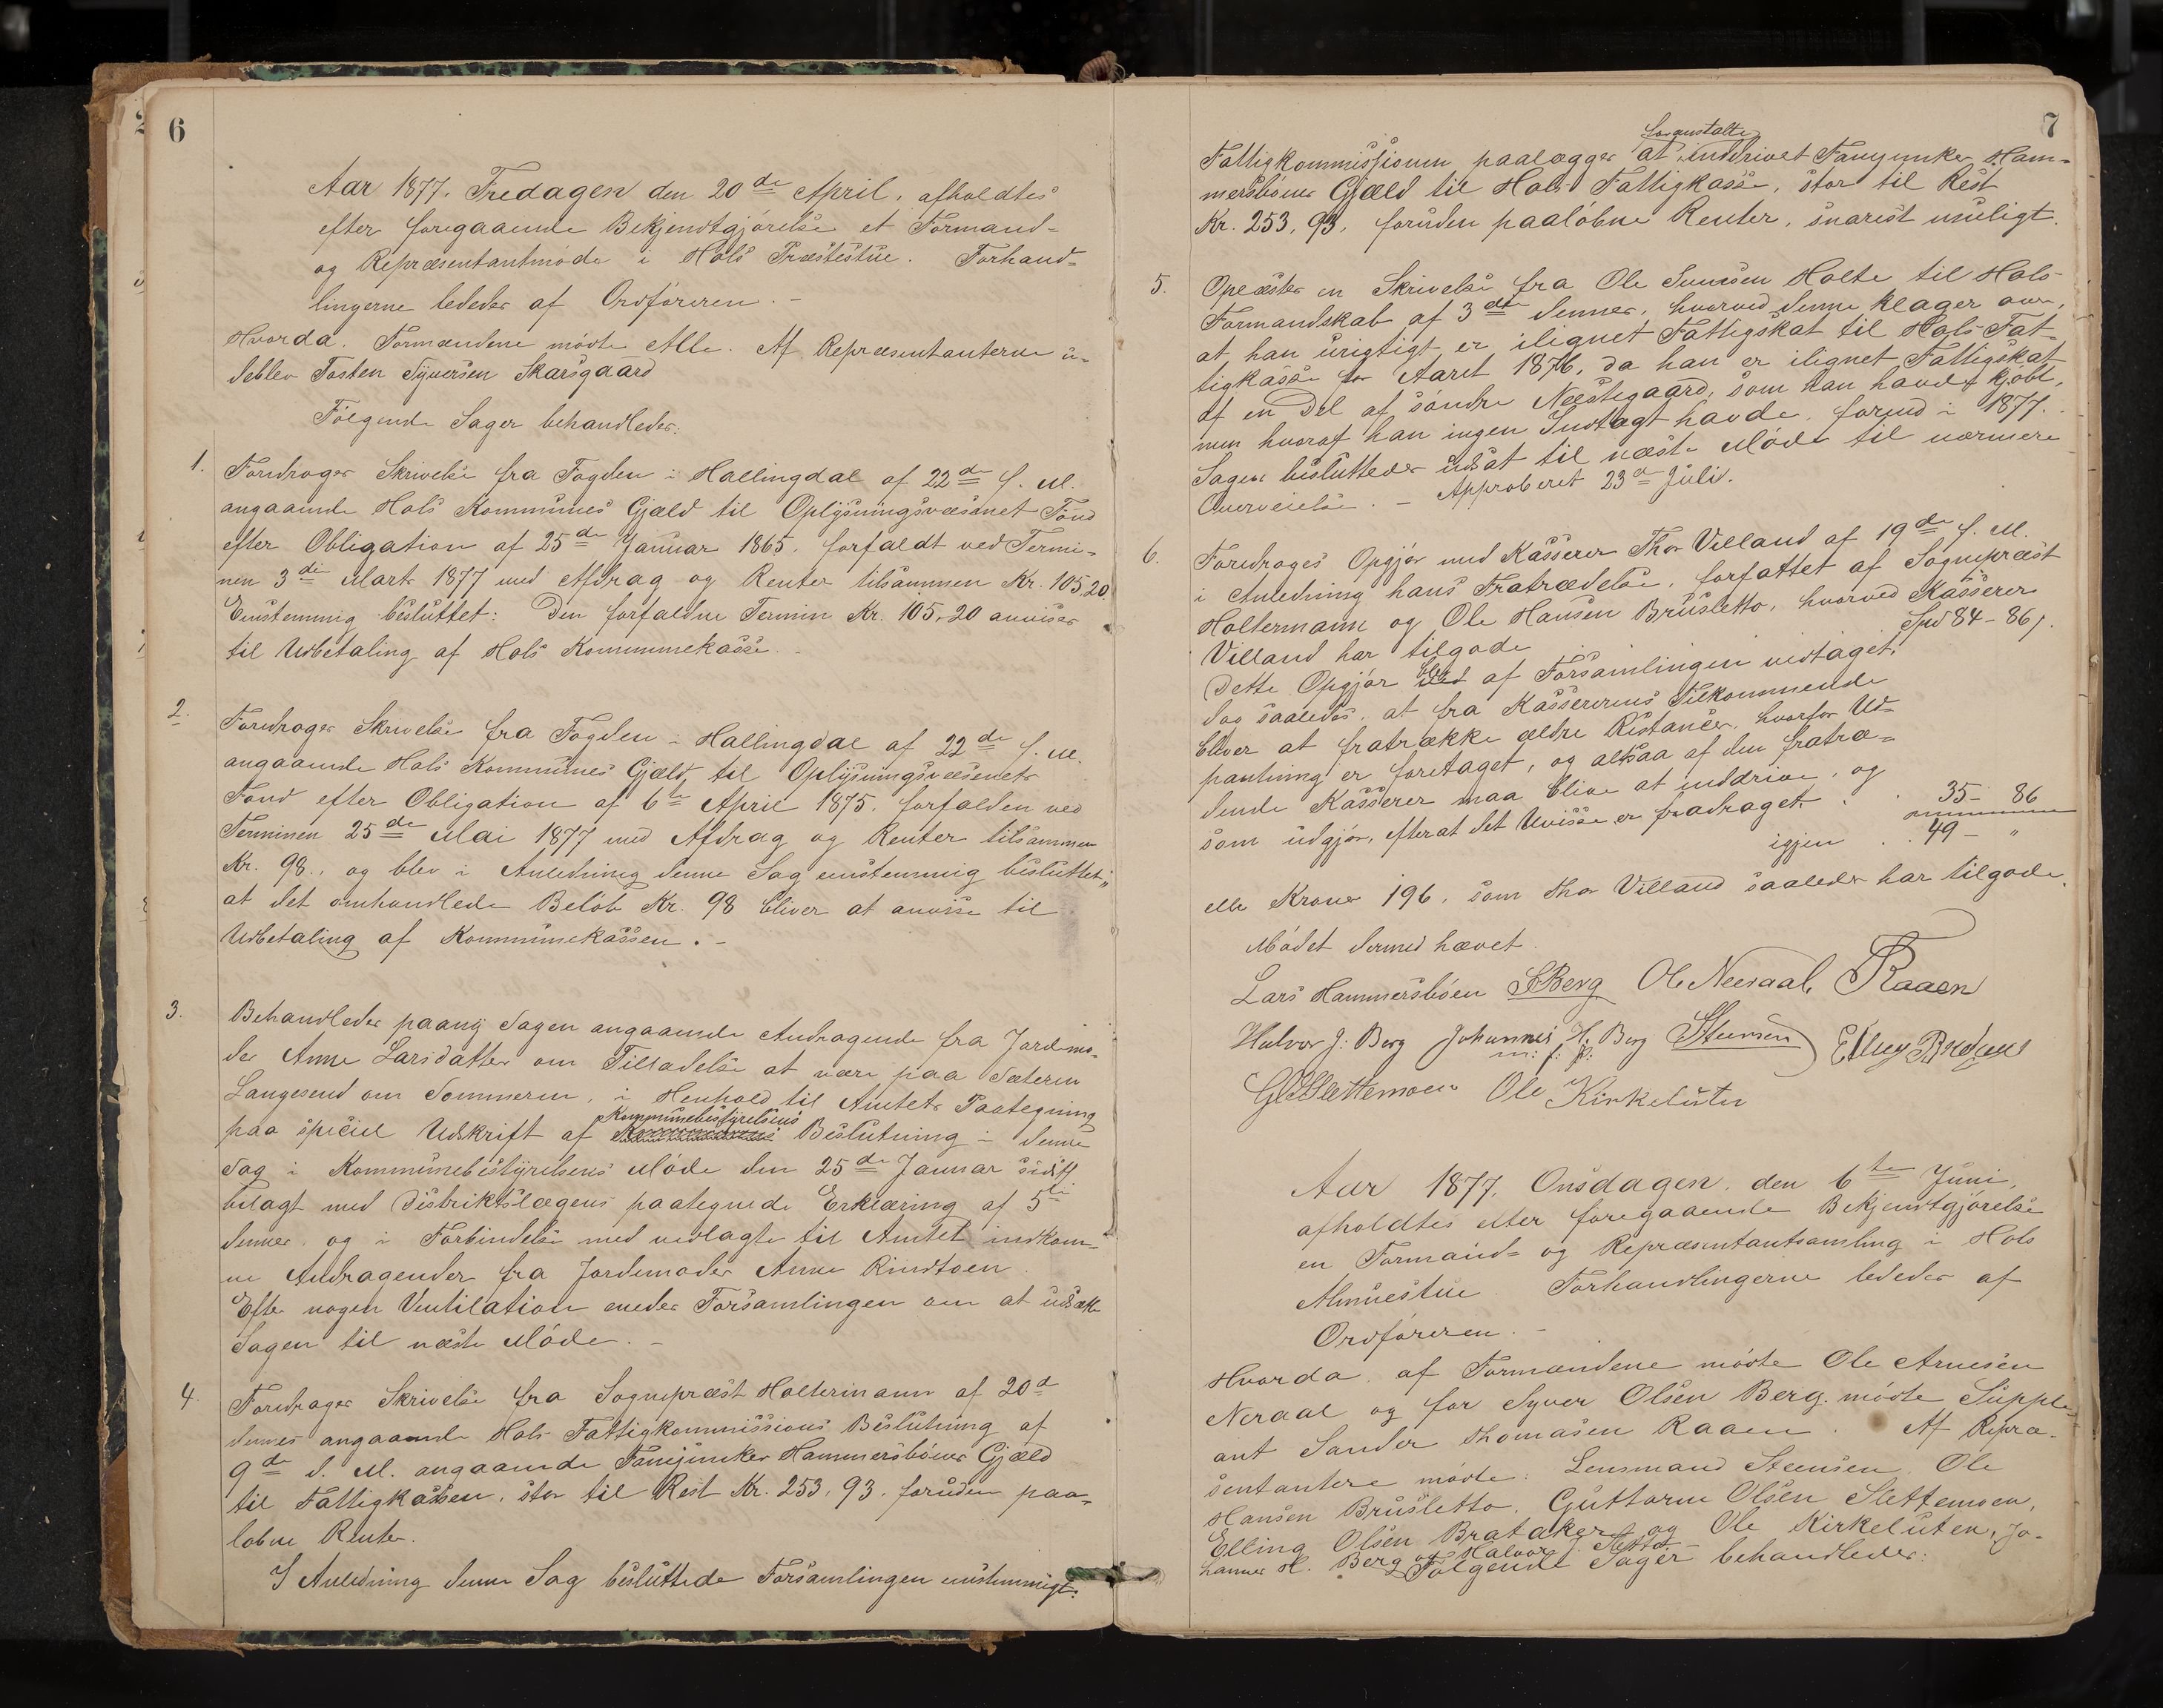 6
Aar 1877. Fredagen den 20de April, afholdtes
efter foregaaende Bekjendtgjørelse et Formand-
og Repræsentantmøde i Hols Præstestue. Forhand-
lingerne lededes af Ordføreren. –
Hvorda. Formændene mødte Alle. Af Repræsentanterne u-
deblev Tosten Syversen Skarsgaard
Følgende Sager behandledes:
1. Foredroges Skrivelse fra Fogden i Hallingdal af 22de f. M.
angaaende Hols Kommunes Gjæld til Oplysningsvæsenet Fond
efter Obligation af 25de Januar 1865, forfaldt ved Termi-
nen 3die Marts 1877 med Afdrag og Renter tilsammen Kr. 105,20.
Eenstemmig besluttet: Den forfaldne Termin Kr. 105,20 anvises
til Udbetaling af Hols Kommunekasse. –
2. Foredroges Skrivelse fra Fogden i Hallingdal af 22de f. M.
angaaende Hols Kommunes Gjæld, til Oplysningsvæsenets
Fond efter Obligation af 6te April 1875, forfalden ved
Terminen 25de Mai 1877 med Afdrag og Renter tilsammen
Kr. 98., og blev i Anledning denne Sag eenstemmig besluttet:
at det omhandlede Beløb Kr. 98 bliver at anvise til
Udbetaling af Kommunekassen. –
3. Behandledes paany Sagen angaaende Andragende fra Jordmo-
der Anne Larsdatter om Tilladelse at være paa Sæteren
Langesend om Sommeren, i Henhold til Amtets Paategning
Kommunebestyrelsens
paa speciel Udskrift af Beslutning i denne
Sag i Kommunebestyrelsens Møde den 25de Januar sidstl
belagt med Distriktslægens paategnede Erklæring af 5te
dennes og i Forbindelse med vedlagte til Amtet indkom-
ne Andragender fra Jordemoder Anne Rindtoen.
Efter nogen Ventilation enedes Forsamlingen om at udsætte
Sagen til næste Møde. –
4. Foredroges Skrivelse fra Sognepræst Holtermann af 20de
dennes angaaende Hols Fattigkommissions Beslutning af
9de d. M. angaaende Fanejunker Hammersbøens Gjæld
til Fattigkassen, stor til Rest Kr. 253,93. foruden paa-
løbne Renter.
I Anledning denne Sag besluttede Forsamlingen eenstemmigt:
7
foranstalte
Fattigkommissionen paalægges at inddrivet Fanejunker Ham-
mersbøens Gjæld til Hols Fattigkasse, stor til Rest
Kr. 253,93, foruden paaløbne Renter, snarest muligt.
5. Oplæstes en Skrivelse fra Ole Svensen Holte til Hols
Formandskab af 3die dennes, hvorved denne klager over,
at han urigtigt er ilignet Fattigskat til Hols Fat-
tigkasse for Aaret 1876, da han er ilignet Fattigskat
af en Del af søndre Næstegaard, som han havde kjøbt,
men hvoraf han ingen Indtægt havde forend i 1877.
Sagen besluttedes udsat til næste Møde til nærmere
Overveielse. – Approberet 23de Juli.
6. Foredroges Opgjør med Kasserer Thor Villand af 19de f. M.
i Anledning hans Fratrædelse, forfattet af Sognepræst
Holtermann og Ole Hansen Brusletto, hvorved Kasserer
Villand har tilgode Spd 84 – 86 s.
Dette Opgjør blev af Forsamlingen vedtaget,
dog saaledes, at fra Kassererens Tilkommende
bliver at fratrække ældre Restancer, hvorfor Ud-
pantning er foretaget, og altsaa af den fratræ-
dende Kasserer maa blive at inddrive, og
som udgjør, efterat det Uvisse er fradraget . . 35 – 86
igjen . . 49 – "
elle Kroner 196, som Thor Villand saaledes har tilgode.
Mødet dermed hævet.
Lars Hammersbøen SBerg Ole Neeraal, TRaaen
Halvor J: Berg Johannes H. Berg Steensen Elling Brataker
m: f: p:
GOSlettemoen Ole Kirkeluten
Aar 1877, Onsdagen den 6te Juni,
afholdtes efter foregaaende Bekjendtgjørelse
en Formand- og Repræsentantsamling i Hols
Almuestue. Forhandlingerne lededes af
Ordføreren. –
Hvorda af Formændene mødte Ole Arnesen
Neraal og for Syver Olsen Berg mødte Supple-
ant Sander Thomasen Raaen. Af Repræ-
sentantere mødte: Lensmand Steensen, Ole
Hansen Brusletto, Guttorm Olsen Slettemoen,
Elling Olsen Brataker og Ole Kirkeluten, Jo-
hannes H. Berg og Halvor J.
Følgende Sager behandledes: